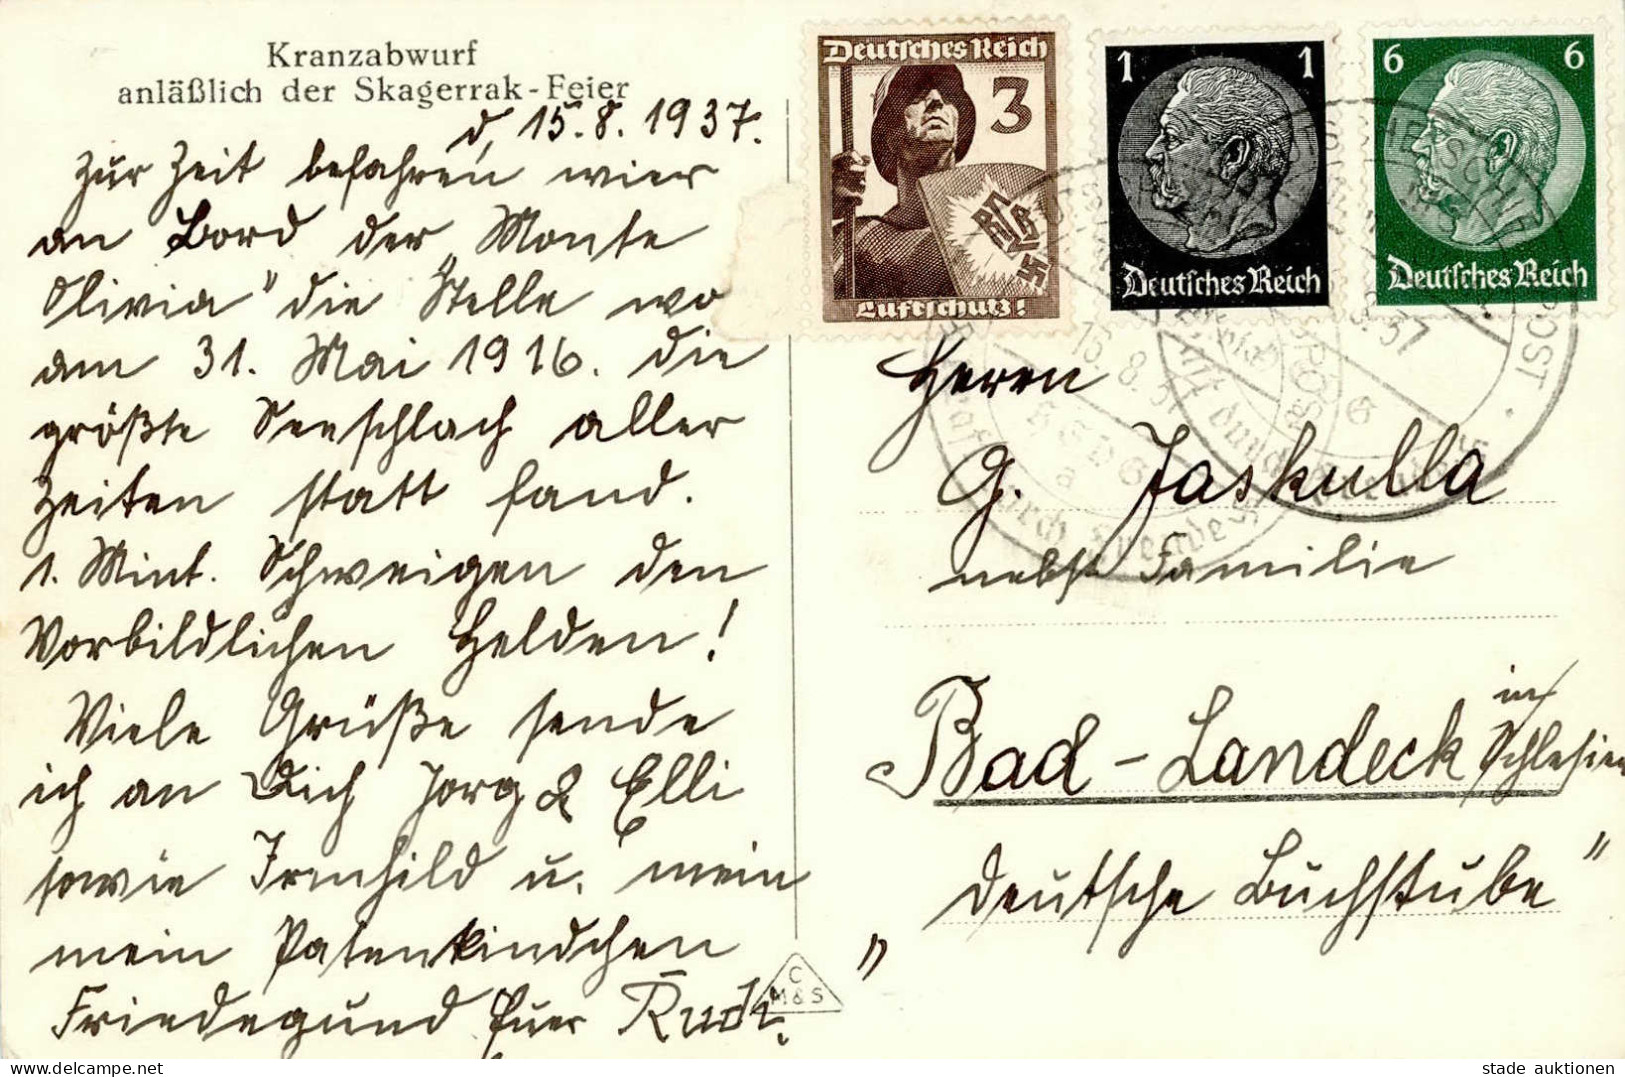 Kranzabwurf
anläßlich der Skagerrak-Feier
d. 15.8.1937.
Zur Zeit befahren wier
an Bord der „Monte
Olivia" die Stelle wo
am 31. Mai 1916. die
größte Seeschlach aller
Zeiten statt fand.
1. Mint. Schweigen den
Vorbildlichen Helden!
Viele Grüße sende
ich an Dich Jorg & Elli
sowie Irmhild u. mein
mein Patenkindchen
Friedegund Euer Rudi.
C
M&S
Deutsches Reich
3
RLB
Luftschutz!
1 1
Deutsches Reich
6 6
Deutsches Reich
16.8.37
Herrn
G. Jaskulla
nebst Familie
Bad-Landeck in Schlesien
„Deutsche Buchstube"
stade auktionen